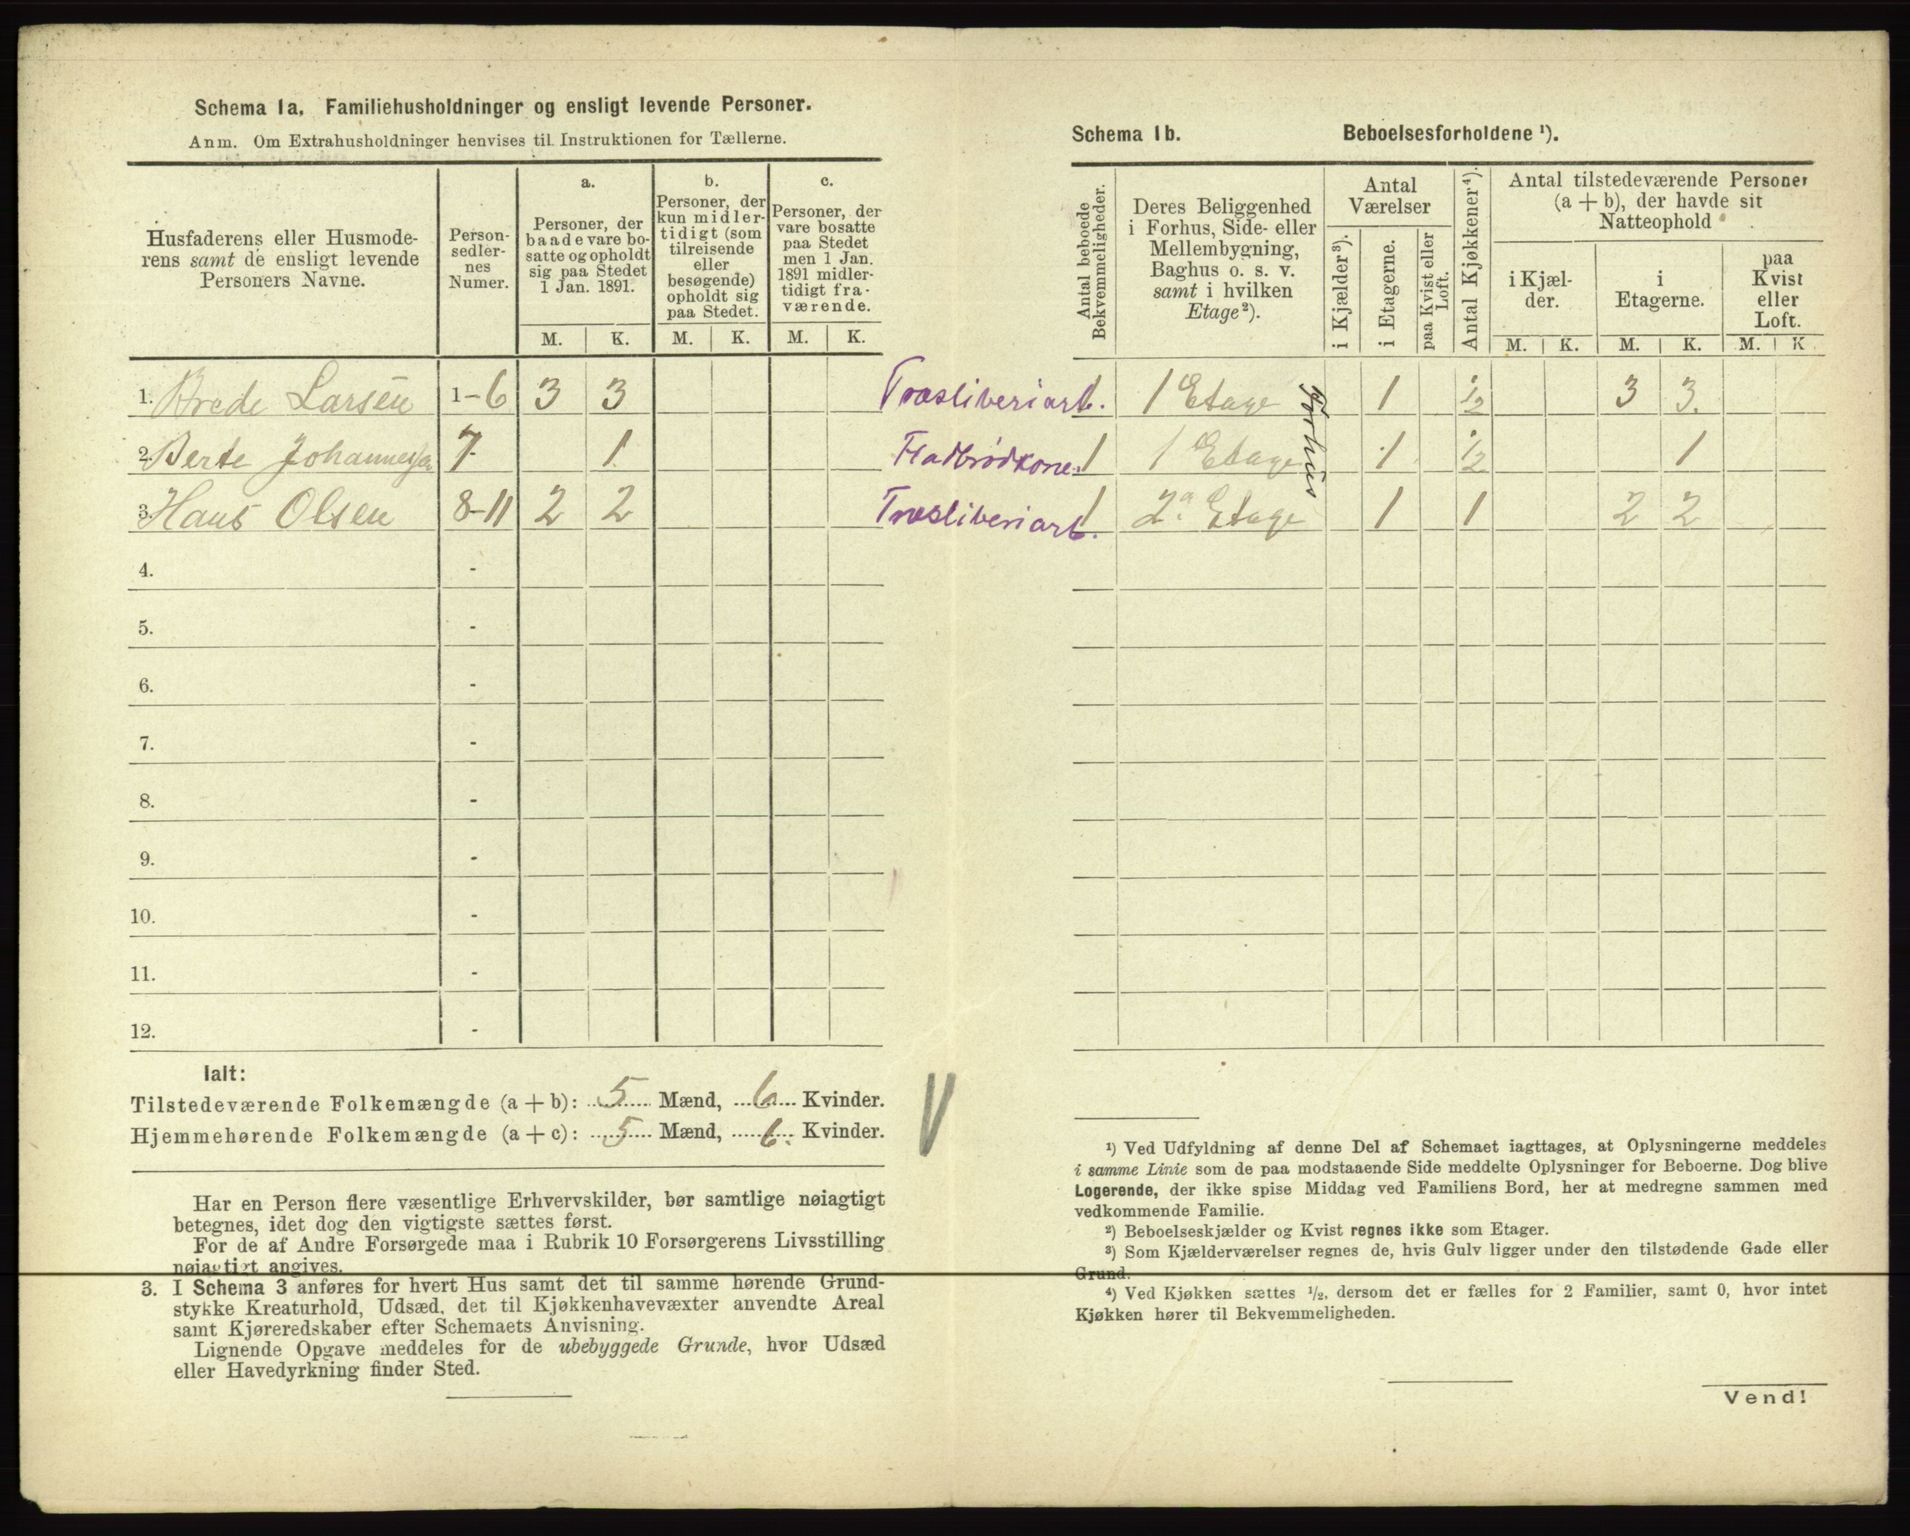 Schema 1a. Familiehusholdninger og ensligt levende Personer.
Anm. Om Extrahusholdninger henvises til Instruktionen for Tællerne.
Husfaderens eller Husmode-
rens samt de ensligt levende
Personers Navne.
Person-
sedler-
nes
Numer.
a.
Personer, der
baade vare bo-
satte og opholdt
sig paa Stedet
1 Jan. 1891.
b.
Personer, der
kun midler-
tidigt (som
tilreisende
eller
besøgende)
opholdt sig
paa Stedet.
c.
Personer, der
vare bosatte
paa Stedet
men 1 Jan.
1891 midler-
tidigt fra-
værende.
M. K. M. K. M. K.
1. Brede Larsen 1-6 3 3 Træsliberiarb.
2. Berte Johannessen 7- 1 Fladbrødkone.
3. Hans Olsen 8-11 2 2 Træsliberiarb.
4. -
5. -
6. -
7. -
8. -
9. -
10. -
11. -
12. -
Ialt:
Tilstedeværende Folkemængde (a + b): 5 Mænd, 6 Kvinder.
Hjemmehørende Folkemængde (a + c): 5 Mænd, 6. Kvinder.
Har en Person flere væsentlige Erhvervskilder, bør samtlige nøiagtigt
betegnes, idet dog den vigtigste sættes først.
For de af Andre Forsørgede maa i Rubrik 10 Forsørgerens Livsstilling
nøiagtigt angives.
3. I Schema 3 anføres for hvert Hus samt det til samme hørende Grund-
stykke Kreaturhold, Udsæd, det til Kjøkkenhavevæxter anvendte Areal
samt Kjøreredskaber efter Schemaets Anvisning.
Lignende Opgave meddeles for de ubebyggede Grunde, hvor Udsæd
eller Havedyrkning finder Sted.
Schema 1b. Beboelsesforholdene ¹).
Antal beboede
Bekvemmeligheder.
Deres Beliggenhed
i Forhus, Side- eller
Mellembygning,
Baghus o. s. v.
samt i hvilken
Etage²).
Antal
Værelser
i Kjælder³).
i Etagerne.
paa Kvist eller
Loft.
Antal Kjøkkener⁴).
Antal tilstedeværende Personer
(a + b), der havde sit
Natteophold
i Kjæl-
der.
i
Etagerne.
paa
Kvist
eller
Loft.
M. K. M. K. M. K
1 1 Etage 1 1/2 3 3.
Forhus
1 1 Etage 1 1/2 1
1 2a Etage 1 1 2 2
¹) Ved Udfyldning af denne Del af Schemaet iagttages, at Oplysningerne meddeles
i samme Linie som de paa modstaaende Side meddelte Oplysninger for Beboerne. Dog blive
Logerende, der ikke spise Middag ved Familiens Bord, her at medregne sammen med
vedkommende Familie.
²) Beboelseskjælder og Kvist regnes ikke som Etager.
³) Som Kjælderværelser regnes de, hvis Gulv ligger under den tilstødende Gade eller
Grund.
⁴) Ved Kjøkken sættes ½, dersom det er fælles for 2 Familier, samt 0, hvor intet
Kjøkken hører til Bekvemmeligheden.
Vend!